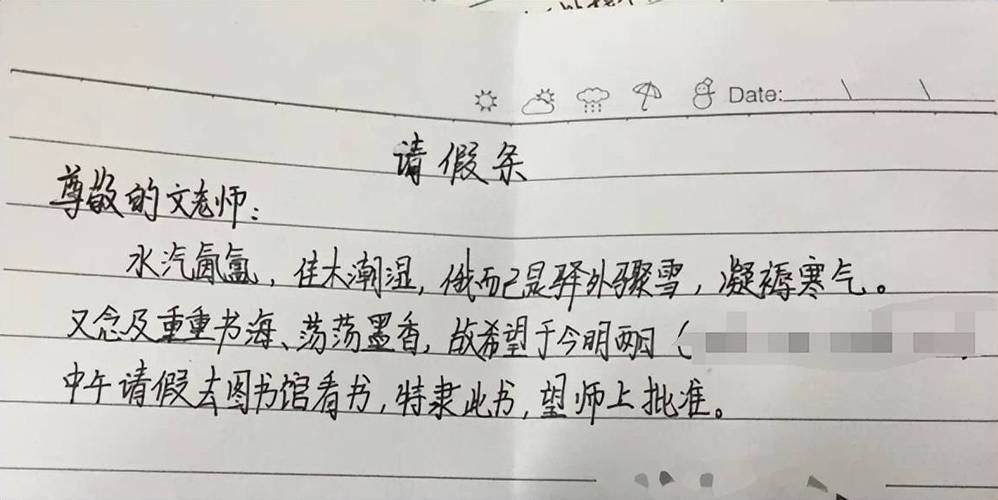 Date:
请假条
尊敬的文老师:
水汽氤氲,佳木潮湿,俄而已是驿外骤雪,凝褥寒气。
又念及重重书海、荡荡墨香,故希望于今明两日(
中午请假去图书馆看书,特隶此书,望师上批准。